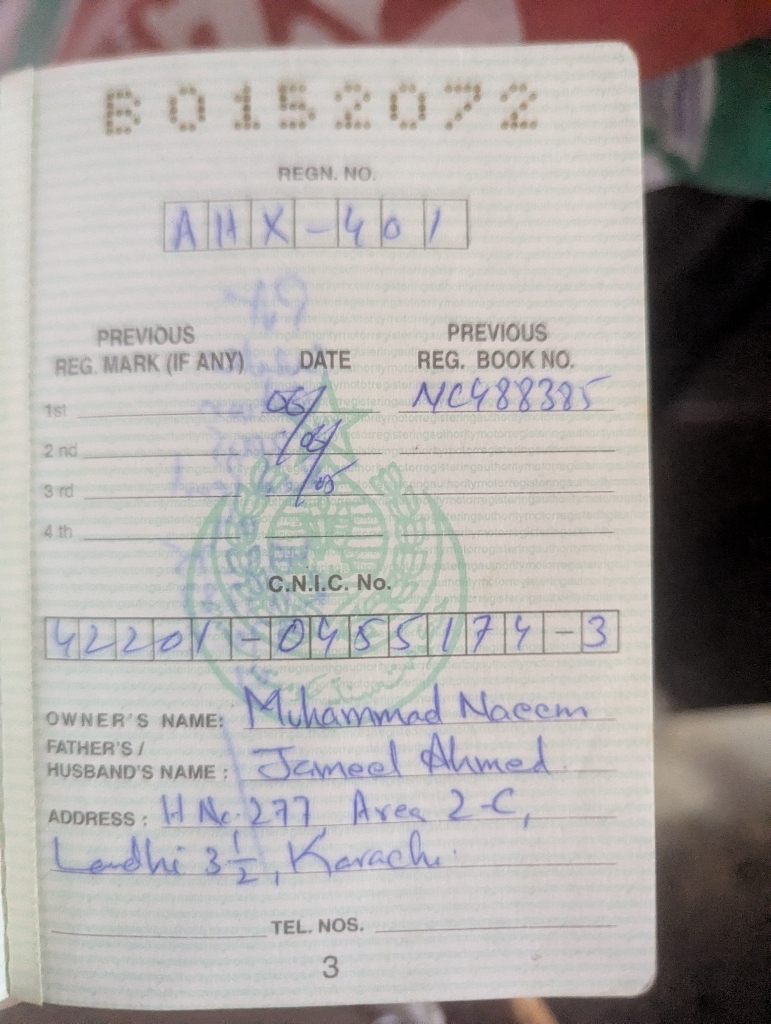 B0152072
REGN. NO.
AHX-401
PREVIOUS REG. MARK (IF ANY) DATE PREVIOUS REG. BOOK NO.
1st 05/05/05 NC488385
2 nd
3 rd
4 th
C.N.I.C. No.
42201-0455174-3
OWNER'S NAME: Muhammad Naeem
FATHER'S /
HUSBAND'S NAME : Jameel Ahmed
ADDRESS : H No. 277 Area 2-C,
Landhi 3 1/2, Karachi.
TEL. NOS.
3